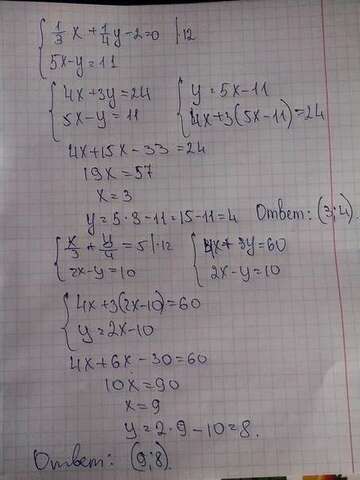 { 1/3 x + 1/4 y - 2 = 0 |·12
5x - y = 11
{ 4x + 3y = 24 { y = 5x - 11
5x - y = 11 4x + 3(5x - 11) = 24
4x + 15x - 33 = 24
19x = 57
x = 3
y = 5·3 - 11 = 15 - 11 = 4 Ответ: (3; 4).
{ x/3 + y/4 = 5 |·12 { 4x + 3y = 60
2x - y = 10 2x - y = 10
{ 4x + 3(2x - 10) = 60
y = 2x - 10
4x + 6x - 30 = 60
10x = 90
x = 9
y = 2·9 - 10 = 8.
Ответ: (9; 8).